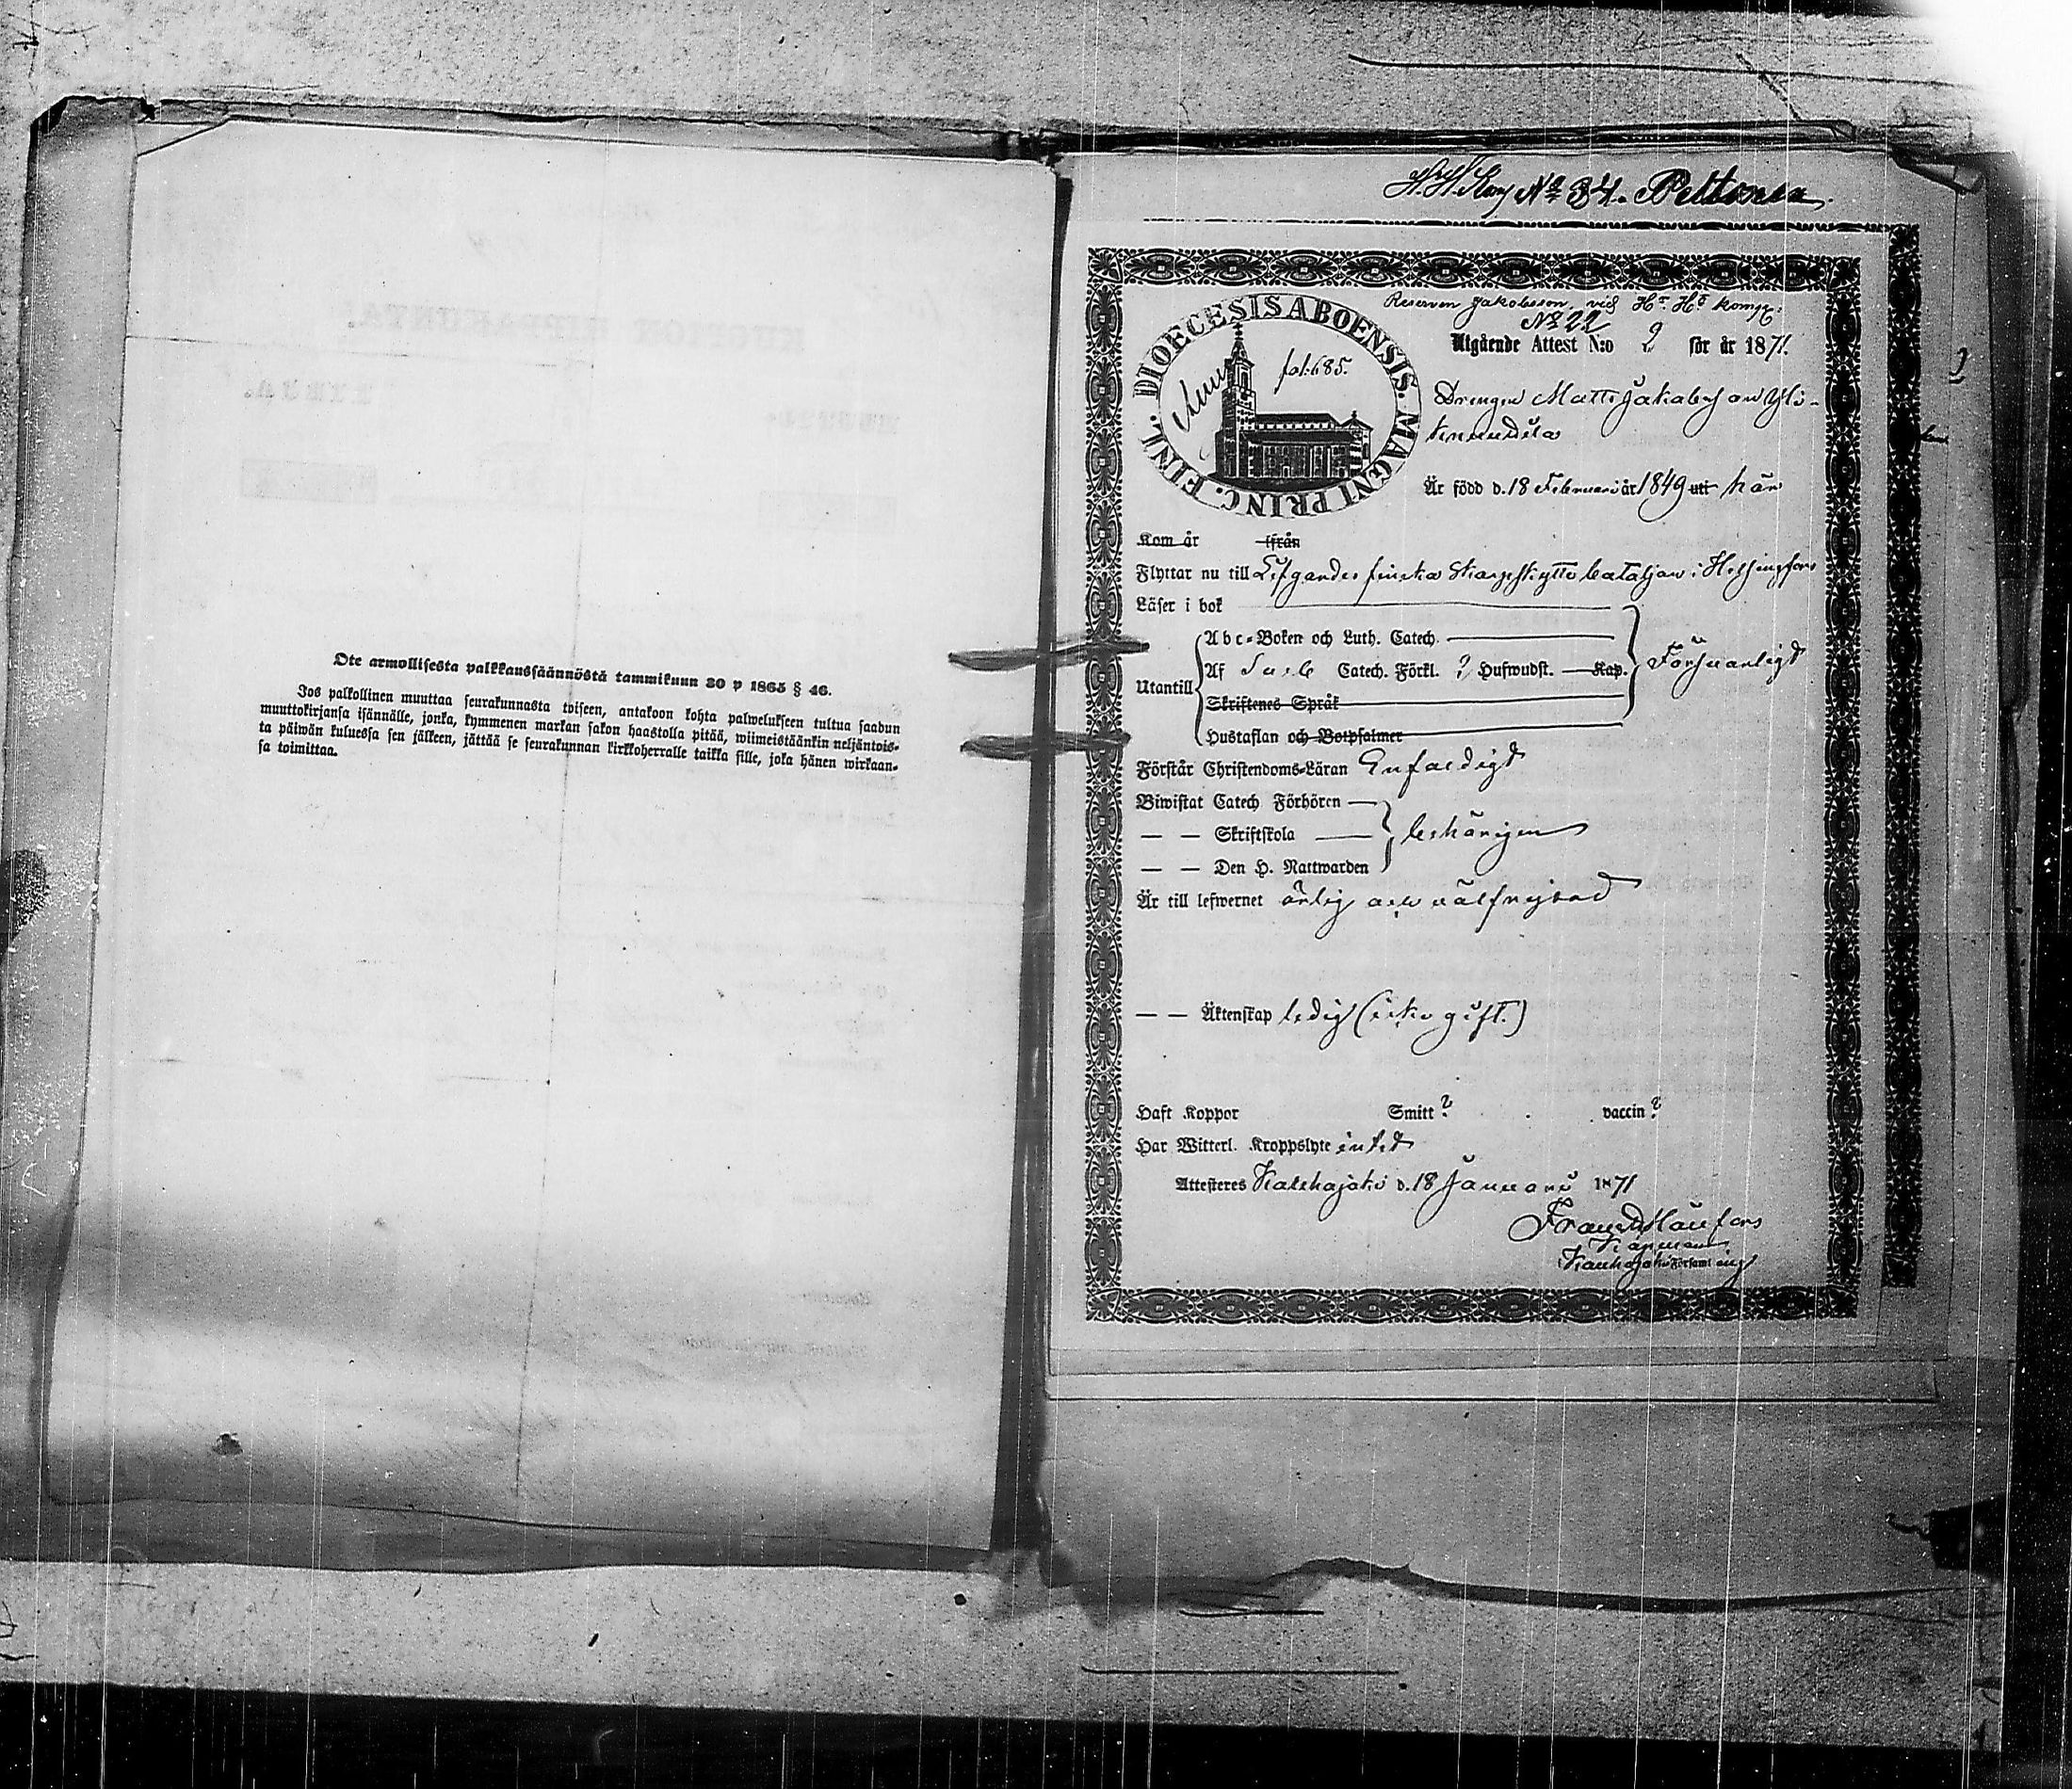 Ote armollisesta palkkaussäännöstä tammikuun 30 p 1865 § 46.
Jos palkollinen muuttaa seurakunnasta toiseen, antakoon kohta palwelukseen tultua saadun
muuttokirjansa isännälle, jonka, kymmenen markan sakon haastolla pitää, wiimeistäänkin neljäntois-
ta päiwän kuluessa sen jälkeen, jättää se seurakunnan kirkkoherralle taikka sille, joka hänen wirkaan-
sa toimittaa.
№ 34. Peltonen
Reserven Jakobsson, vid H:r H:s komp:
№ 22
DIOECESIS ABOENSIS. MAGNI PRINC. FINL.
fol: 685.
Utgående Attest N:o 2 för år 1871.
Drengen Matts Jakobsson Yli-
Är född d. 18 Februari år 1849 uti här
Kom år ifrån
Flyttar nu till Lifgardes finska Skarpskytte bataljon i Helsingfors
Läser i bok
Abc-Boken och Luth. Catech.
Utantill Af Catech. Förkl. ? Hufwudst. Kap. Försvarligt
Skriftenes Språk
Hustaflan och Botpsalmer
Förstår Christendoms-Läran Enfaldigt
Biwistat Catech Förhören
— — Skriftskola behörigen
— — Den H. Nattwarden
Är till lefwernet ärlig och välfrejdad
— — Äktenskap ledig (icke gift.)
Haft Koppor Smitt ? vaccin ?
Har Witterl. Kroppslyte intet
Attesteres d. 18 Januari 1871
Församling